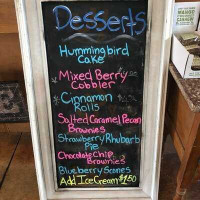 Desserts
Hummingbird
Cake
Mixed Berry
Cobbler
* Cinnamon
Rolls
Salted Caramel Pecan
Brownies
Strawberry Rhubarb
Pie
Chocolate Chip
Brownies
Blueberry Scones
Add Ice Cream $1.50